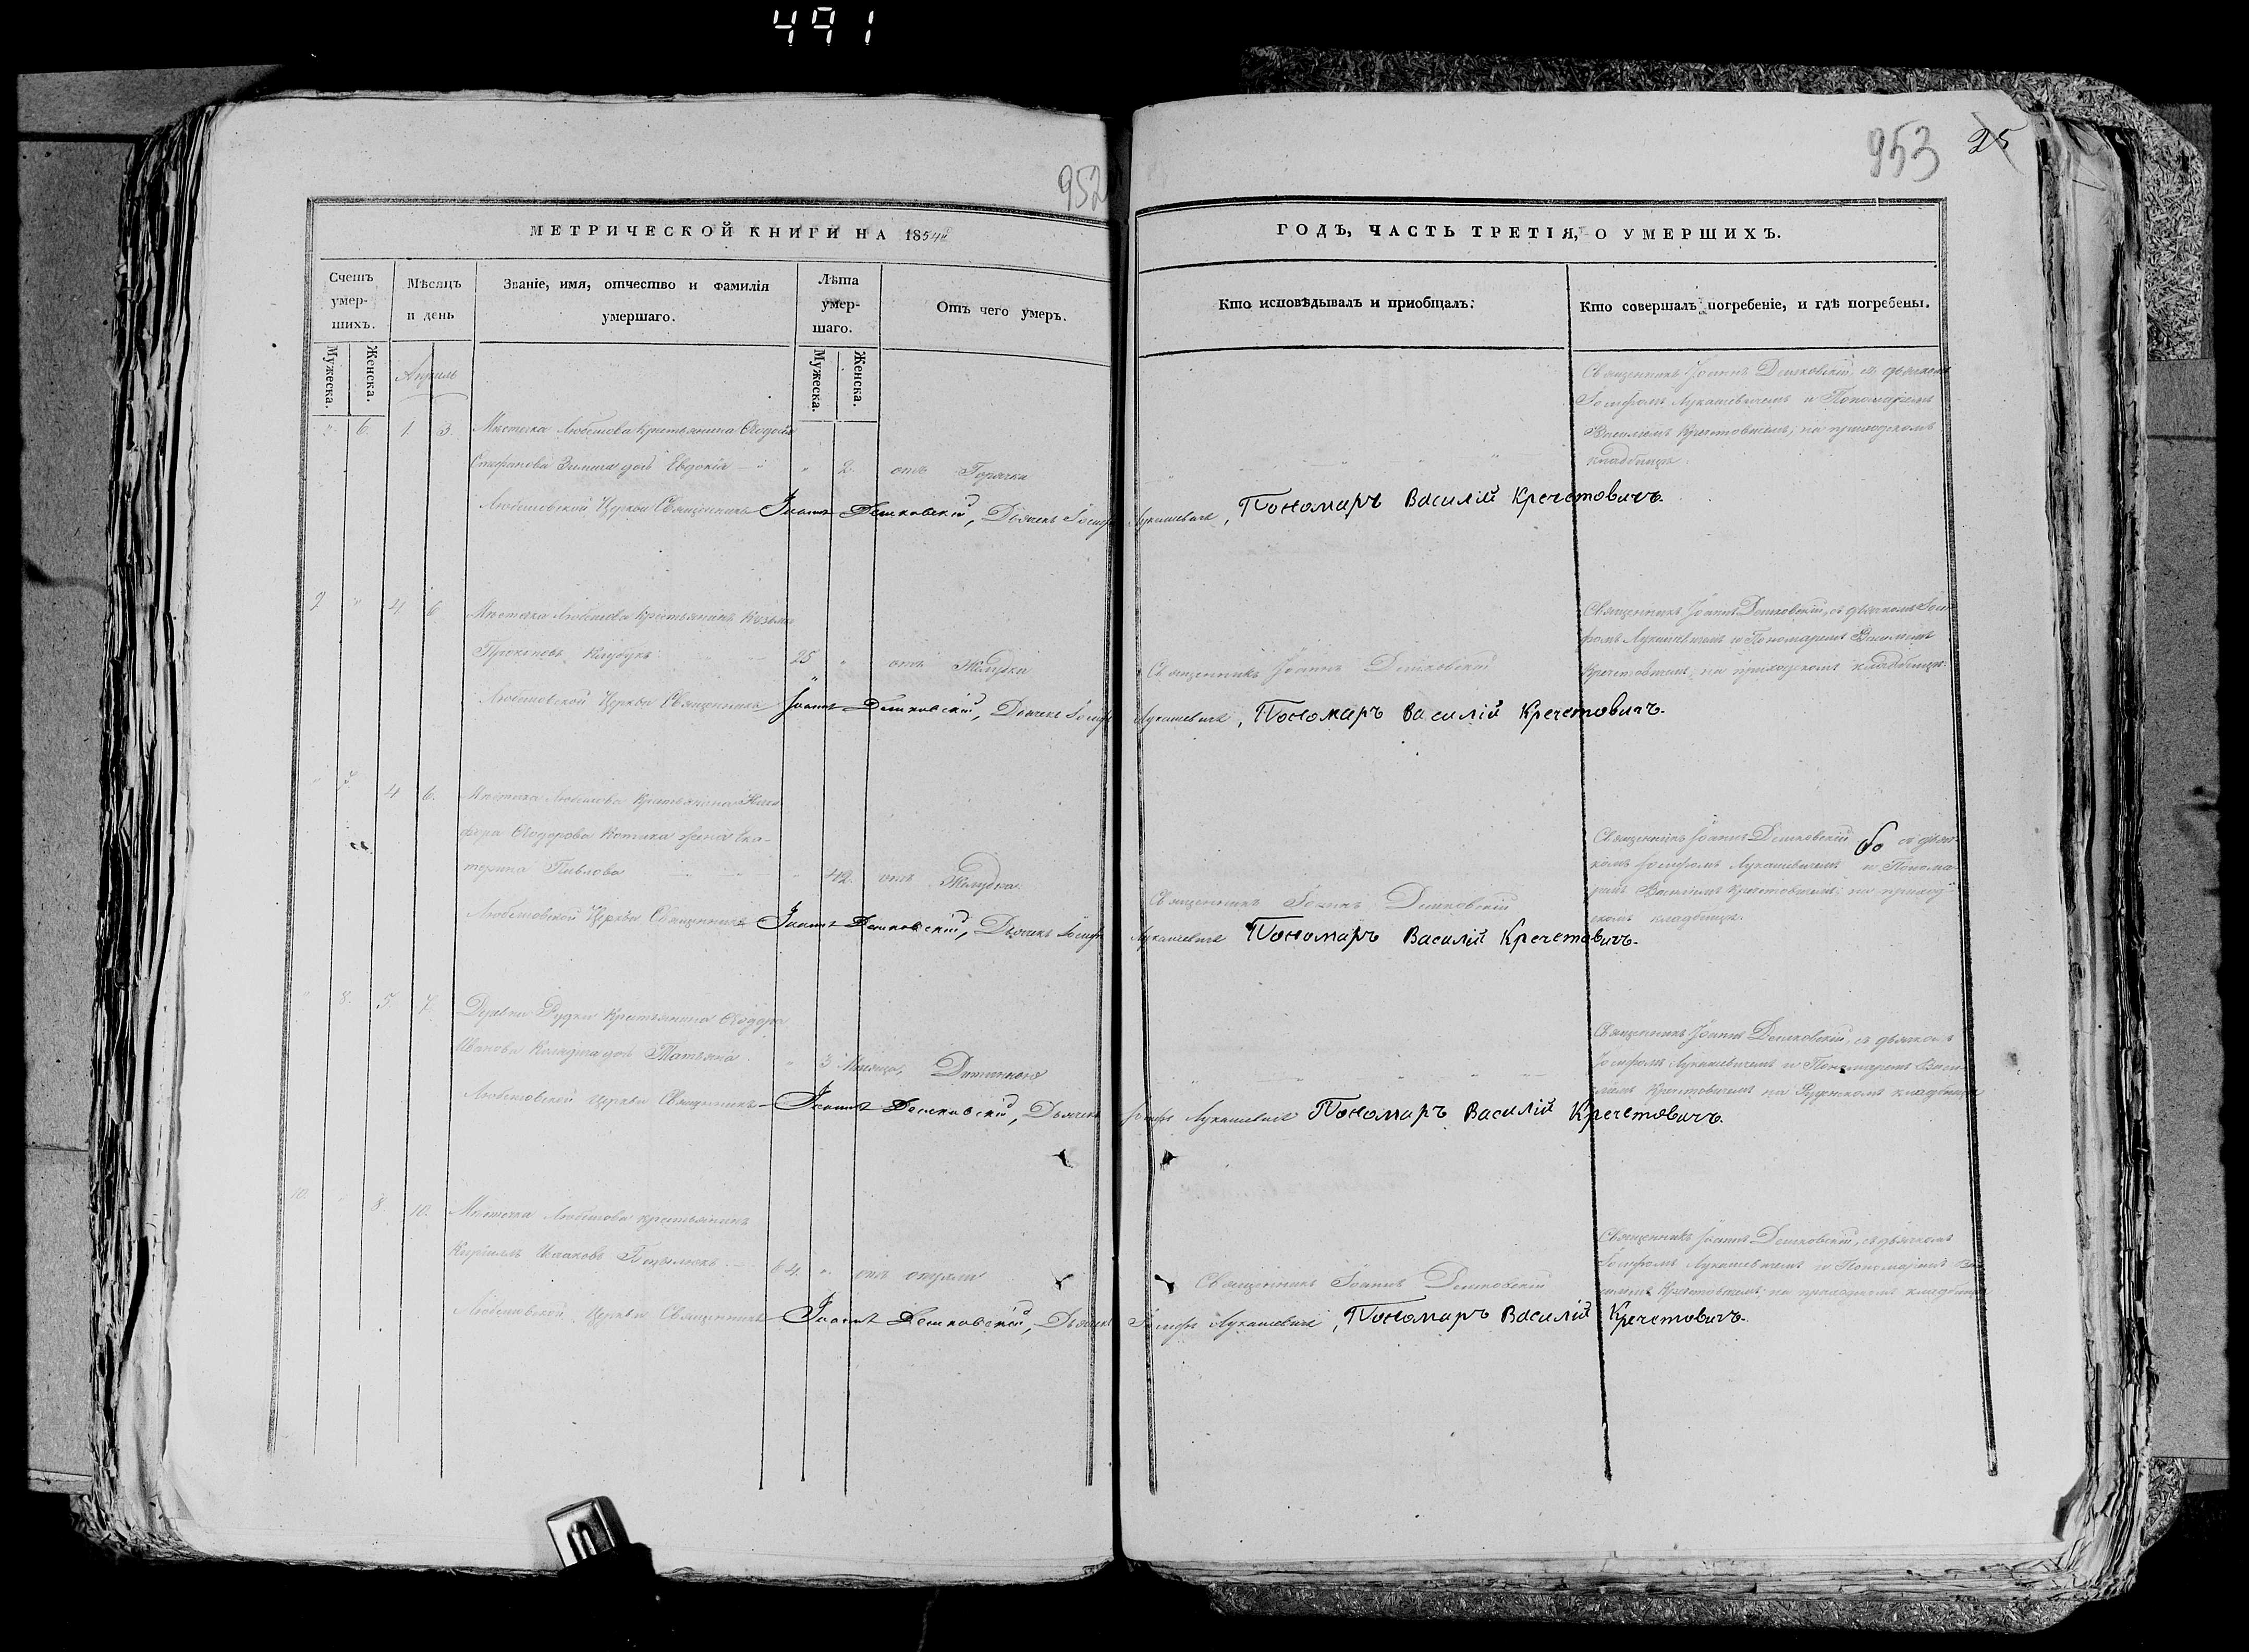 491
952
953 25
МЕТРИЧЕСКОЙ КНИГИ НА 1854й
ГОДЪ, ЧАСТЬ ТРЕТІЯ, О УМЕРШИХЪ.
Счетъ умер-шихъ.
Мужеска.
Женска.
Мѣсяцъ и день
Званіе, имя, отчество и фамилія умершаго.
Лѣта умер-шаго.
Мужеска.
Женска.
Отъ чего умеръ.
Кто исповѣдывалъ и приобщалъ:
Кто совершалъ погребеніе, и гдѣ погребены.
Апрѣль
" 6. 1. 3. Мѣстечка Любешова Крестьянина
дочь Евдокія " 2. отъ Горячки
Священникъ Іоаннъ Дешковскій, съ дьячкомъ
Іосифомъ Лукашевичемъ и Пономаремъ
Василіемъ Кречетовичемъ, на приходскомъ
кладбищѣ
Любешовской Церкви Священникъ Іоаннъ Дешковскій, Дьячекъ Іосифъ Лукашевичъ, Пономаръ Василій Кречетовичъ.
" 4 6 Мѣстечка Любешова Крестьянинъ Кузьма
Прокоповъ 25 " отъ Желудка
Священникъ Іоаннъ Дешковскій
Священникъ Іоаннъ Дешковскій, съ дьячкомъ Іоси-
фомъ Лукашевичемъ и Пономаремъ Василіемъ
Кречетовичемъ, на приходскомъ кладбищѣ.
Любешовской Церкви Священникъ Іоаннъ Дешковскій, Дьячекъ Іосифъ Лукашевичъ, Пономаръ Василій Кречетовичъ.
4 6. Мѣстечка Любешова Крестьянина
жена Ека-
терина Павлова 42. отъ Желудка.
Священникъ Іоаннъ Дешковскій
Священникъ Іоаннъ Дешковскій съ дьяч-
комъ Іосифомъ Лукашевичемъ и Понома-
ремъ Василіемъ Кречетовичемъ, на приход-
скомъ кладбищѣ.
Любешовской Церкви Священникъ Іоаннъ Дешковскій, Дьячекъ Іосифъ Лукашевичъ Пономаръ Василій Кречетовичъ.
8. 5. 7. Деревни Рудки Крестьянина Ѳеодора
Иванова дочь Татьяна. " 3 Мѣсяца,
Священникъ Іоаннъ Дешковскій, съ дьячкомъ
Іосифомъ Лукашевичемъ и Пономаремъ Васи-
ліемъ Кречетовичемъ на кладбищѣ
Любешовской Церкви Священникъ Іоаннъ Дешковскій, Дьячекъ Іосифъ Лукашевичъ Пономаръ Василій Кречетовичъ.
10. 8. 10. Мѣстечка Любешова крестьянинъ
Кириллъ 64. " отъ
Священникъ Іоаннъ Дешковскій
Священникъ Іоаннъ Дешковскій, съ дьячкомъ
Іосифомъ Лукашевичемъ и Пономаремъ Ва-
силіемъ Кречетовичемъ, на приходскомъ кладбищѣ
Любешовской Церкви Священникъ Іоаннъ Дешковскій, Дьячекъ Іосифъ Лукашевичъ, Пономаръ Василій Кречетовичъ.